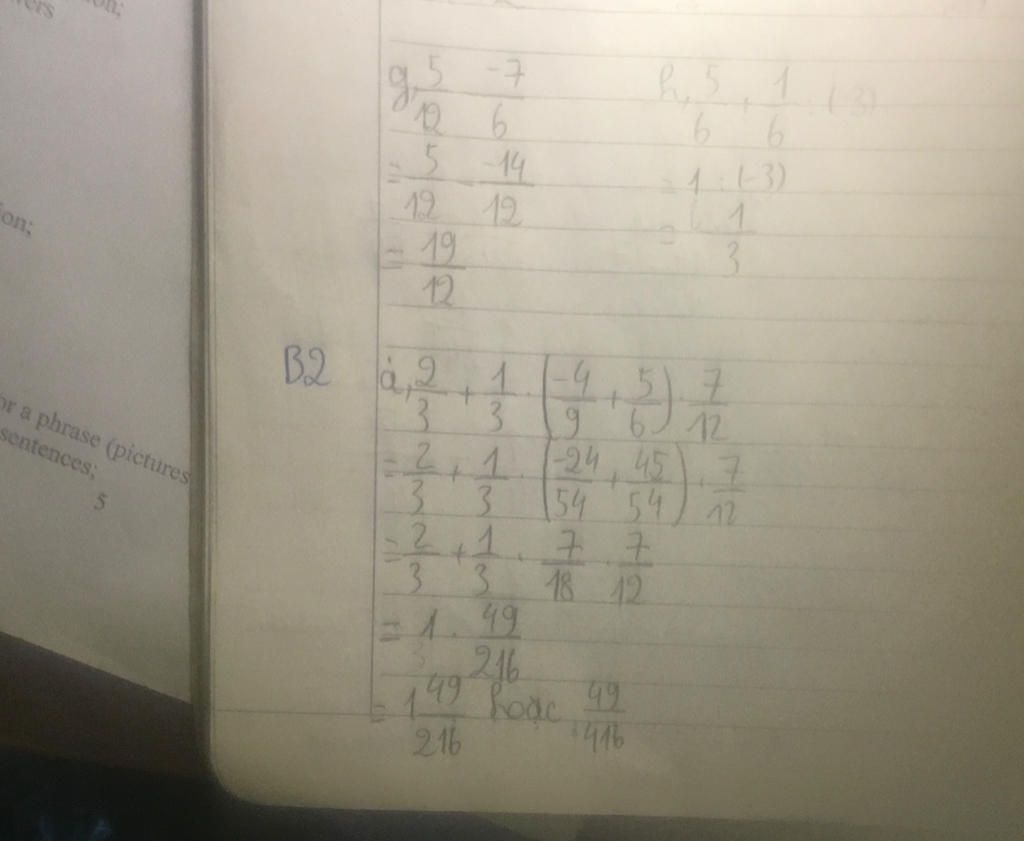 wers
ion;
or a phrase (pictures
sentences;
5
g, 5/12 - -7/6
= 5/12 - -14/12
= 19/12
h, 5/6 + 1/6 : (-3)
= 1 : (-3)
= 1/3
B2
a, 2/3 + 1/3 · (-4/9 + 5/6) · 7/12
= 2/3 + 1/3 · (-24/54 + 45/54) · 7/12
= 2/3 + 1/3 · 7/18 · 7/12
= 1 · 49/216
= 1 49/216 hoặc 49/416